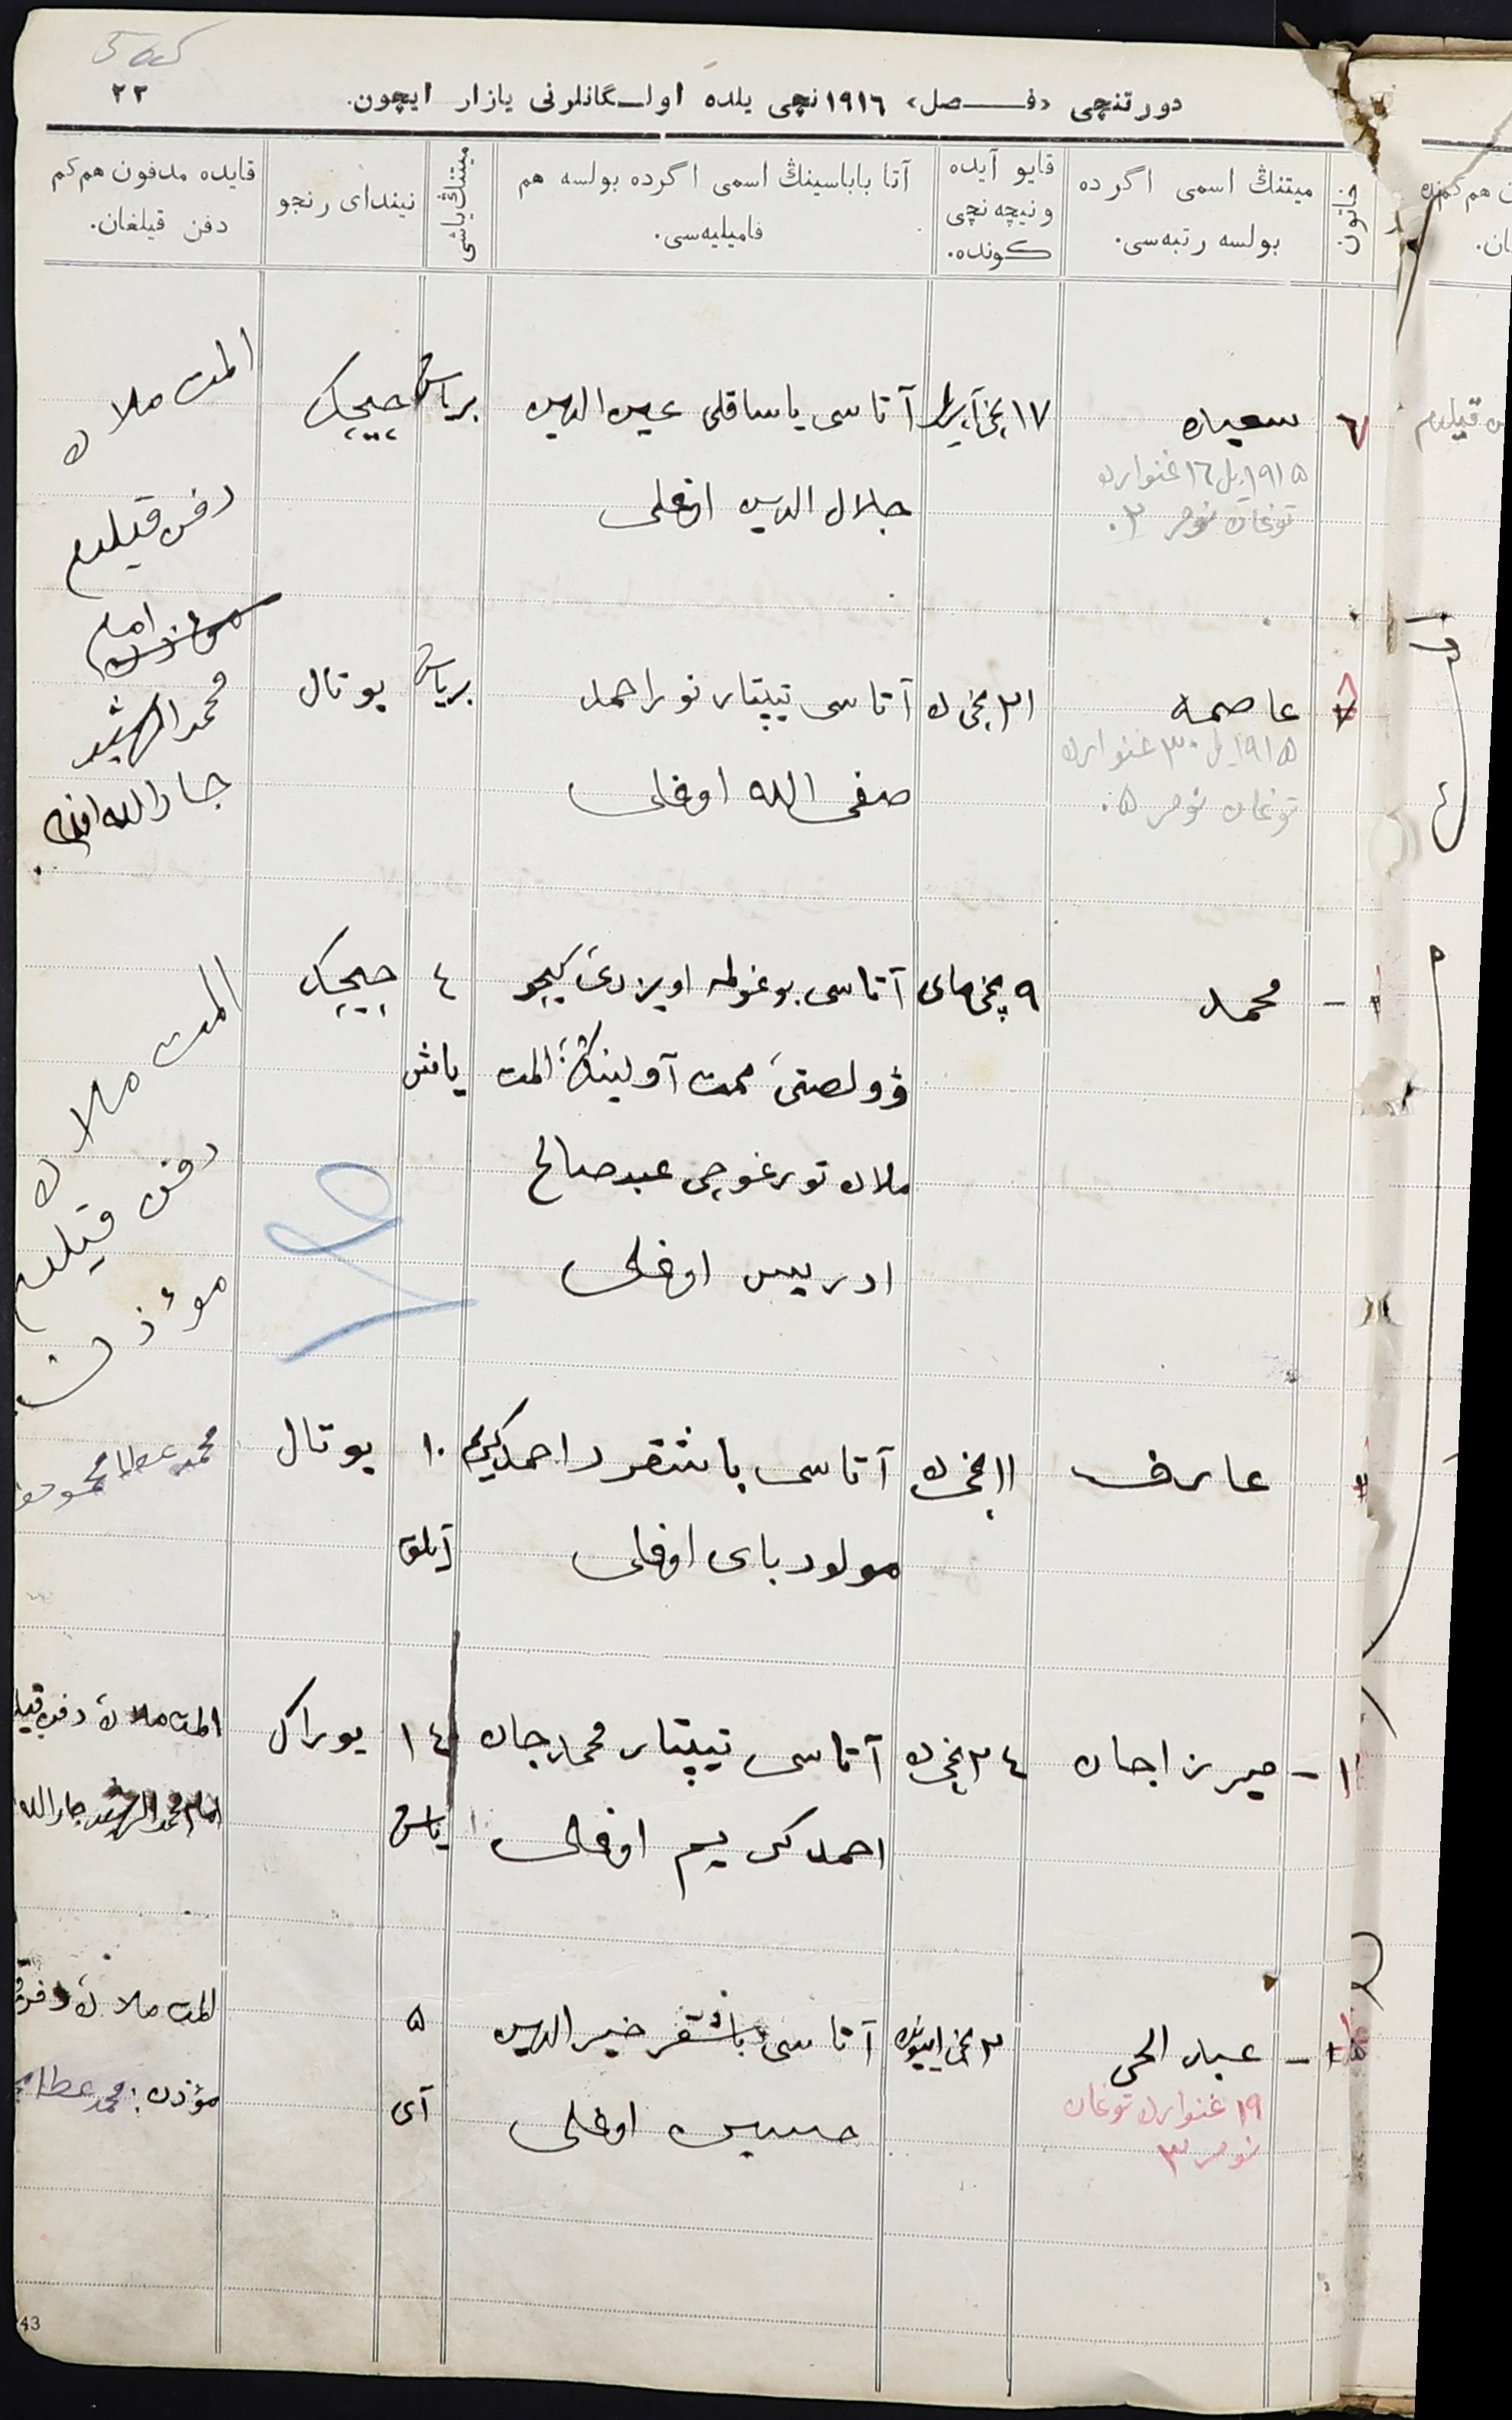 ٢٢
دورتنچی «فصل» ١٩١٦نچی یلده اولگانلرنی یازار ایچون.
خاتون
میتنڭ اسمی اگرده بولسه رتبه‌سی.
قایو آیده ونیچه نچی کونده.
آتا باباسینڭ اسمی اگرده بولسه هم فامیلیه‌سی.
میتنڭ یاشی
نیندای رنجو
قایده مدفون هم‌کم دفن قیلغان.
٦
سعیده
١٩١٥ یل ١٦ غنوارده
توغان نومر ٣.
١٧ نچی آپریل
آتاسی یاساقلی عین الدین
جلال الدین اوغلی
بر یاش
چیچک
المت ملاده
دفن قیلدم
امام
محمد الرشید
جارالله اف
عاصمه
١٩١٥ یل ٣٠ غنوارده
توغان نومر ٥.
٢١ نچی ده
آتاسی تیپتار نور احمد
صفی الله اوغلی
بر یاش
یوتال
محمد
٩ نچی مای
آتاسی بوغولمه اویزدی کیچو
ۋولصتی محمت آولینڭ المت
ملاده تورغوچی عبد صالح
ادریس اوغلی
٤
یاش
چیچک
المت ملاده
دفن قیلدم
مؤذن
محمد عطا
عارف
١١ نچی ده
آتاسی باشقرد احمد کریم
مولود بای اوغلی
١٠
آیلق
یوتال
میرزاجان
٢٤ نچی ده
آتاسی تیپتار محمد جان
احمد کریم اوغلی
١٤
یاش
یوراک
المت ملاده دفن
امام محمد الرشید جارالله
عبد الحی
١٩ غنوارده توغان
نومر ٣
٣ نچی اییونده
آتاسی باشقر خیر الدین
حسین اوغلی
٥
آی
المت ملاده دفن
مؤذن: محمد عطا
43